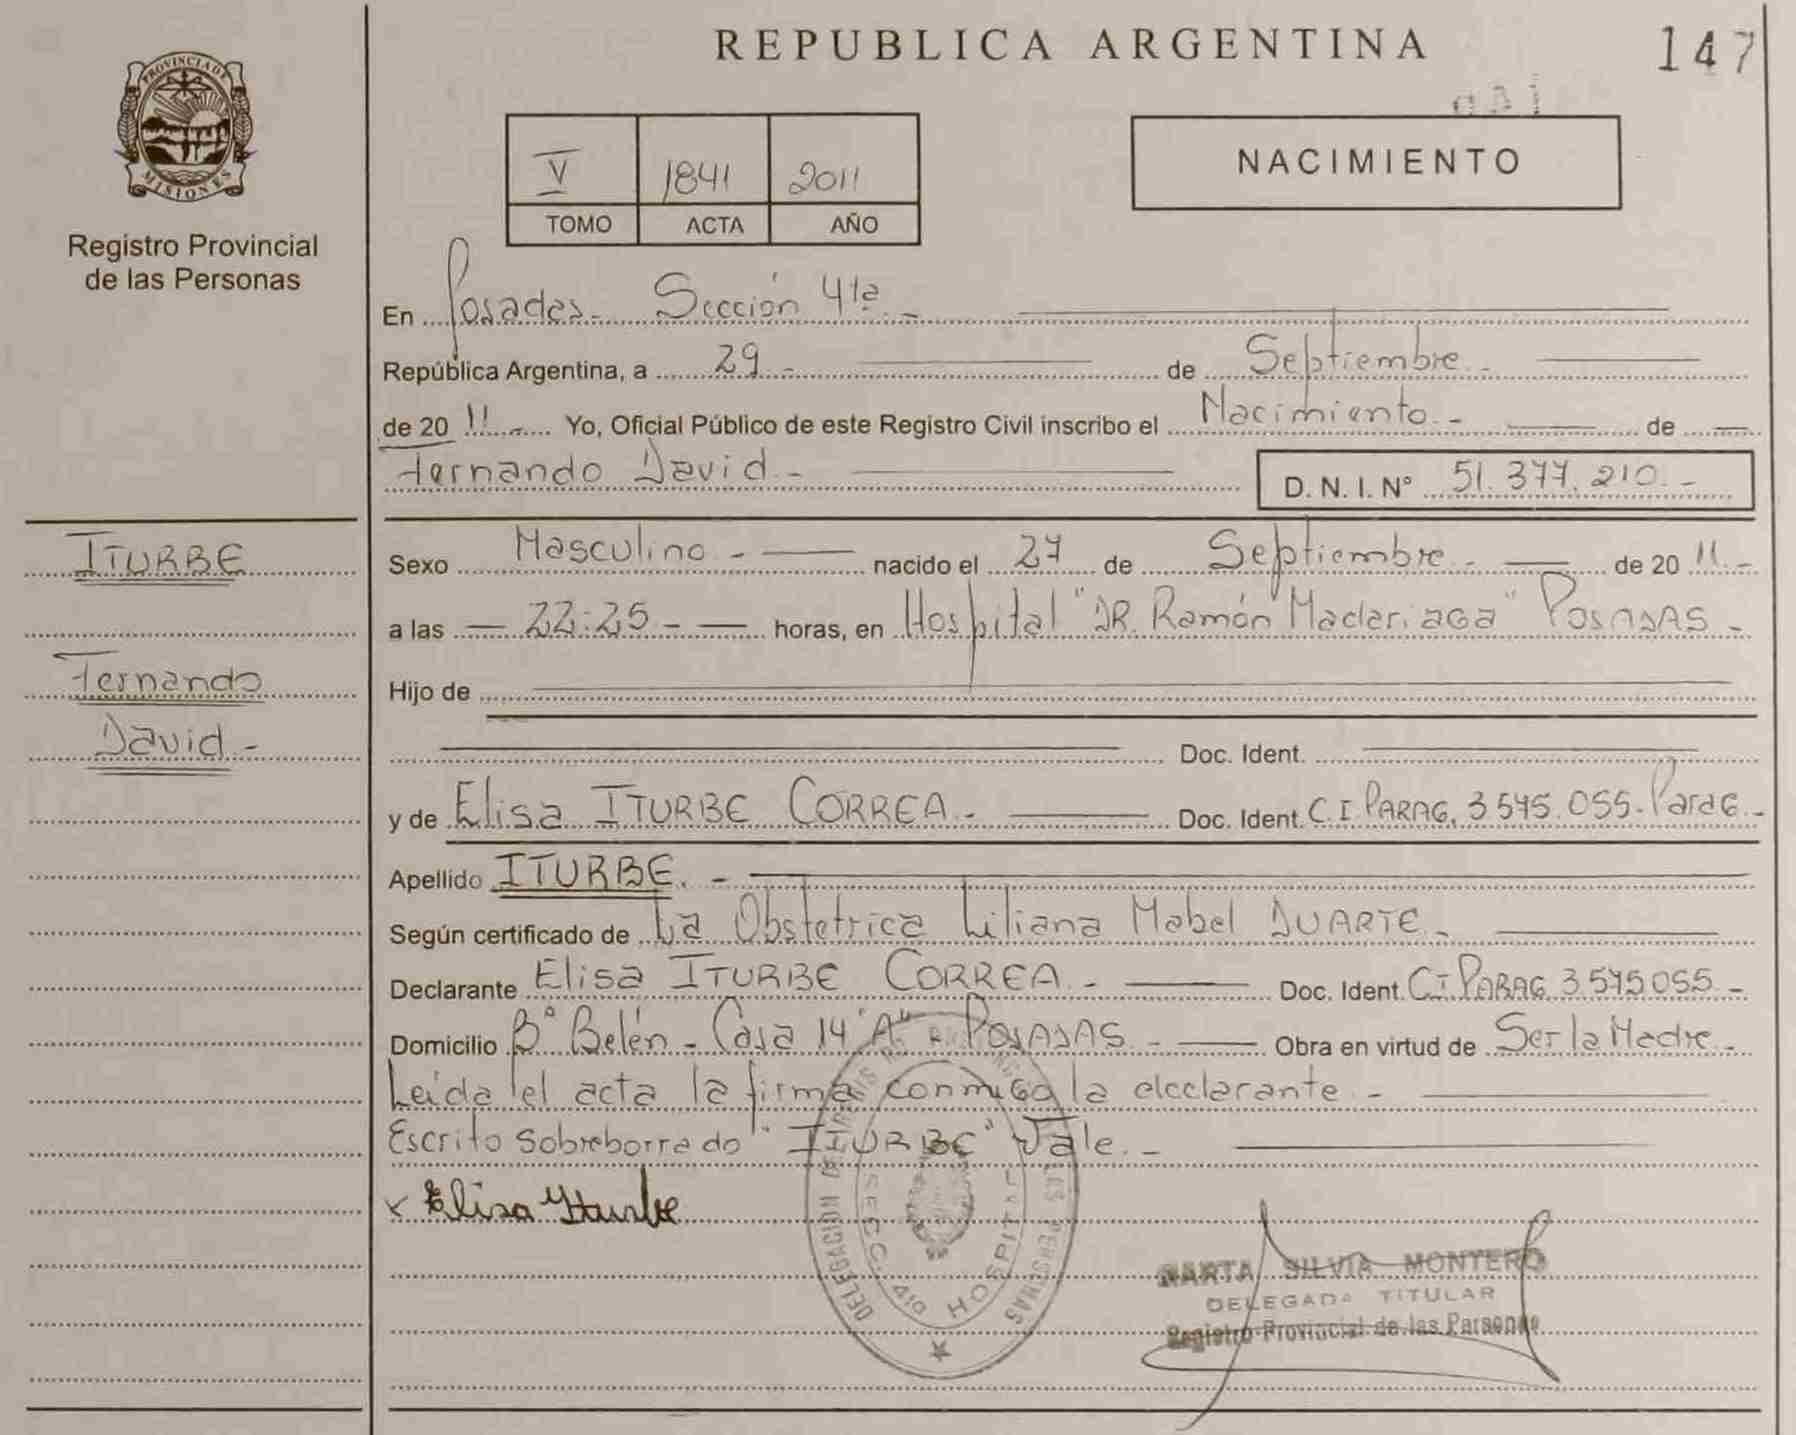 REPUBLICA ARGENTINA
147
PROVINCIA DE
MISIONES
Registro Provincial
de las Personas
V 1841 2011
TOMO ACTA AÑO
NACIMIENTO
En Posadas - Sección 4ta -
República Argentina, a 29 - de Septiembre -
de 20 11 - Yo, Oficial Público de este Registro Civil inscribo el Nacimiento - de
Fernando David - D. N. I. N° 51.377.210. -
ITURBE
Fernando
David -
Sexo Masculino - nacido el 27 de Septiembre - de 20 11. -
a las 22:25 - horas, en Hospital "DR. Ramón Madariaga" POSADAS -
Hijo de
Doc. Ident.
y de Elisa ITURBE CORREA - Doc. Ident. C.I. PARAG. 3545.055 - Parag -
Apellido ITURBE. -
Según certificado de La Obstetrica Liliana Mabel DUARTE -
Declarante Elisa ITURBE CORREA - Doc. Ident. C.I PARAG 3545055 -
Domicilio B° Belén - Casa 14 "A" - POSADAS - Obra en virtud de Ser la Madre -
Leída el acta la firma conmigo la declarante -
Escrito sobreborrado "ITURBE" Vale. -
x Elisa Iturbe
DELEGACION DE LAS PERSONAS
SECC. 4ta HOSPITAL
MARTA SILVIA MONTERO
DELEGADA TITULAR
Registro Provincial de las Personas